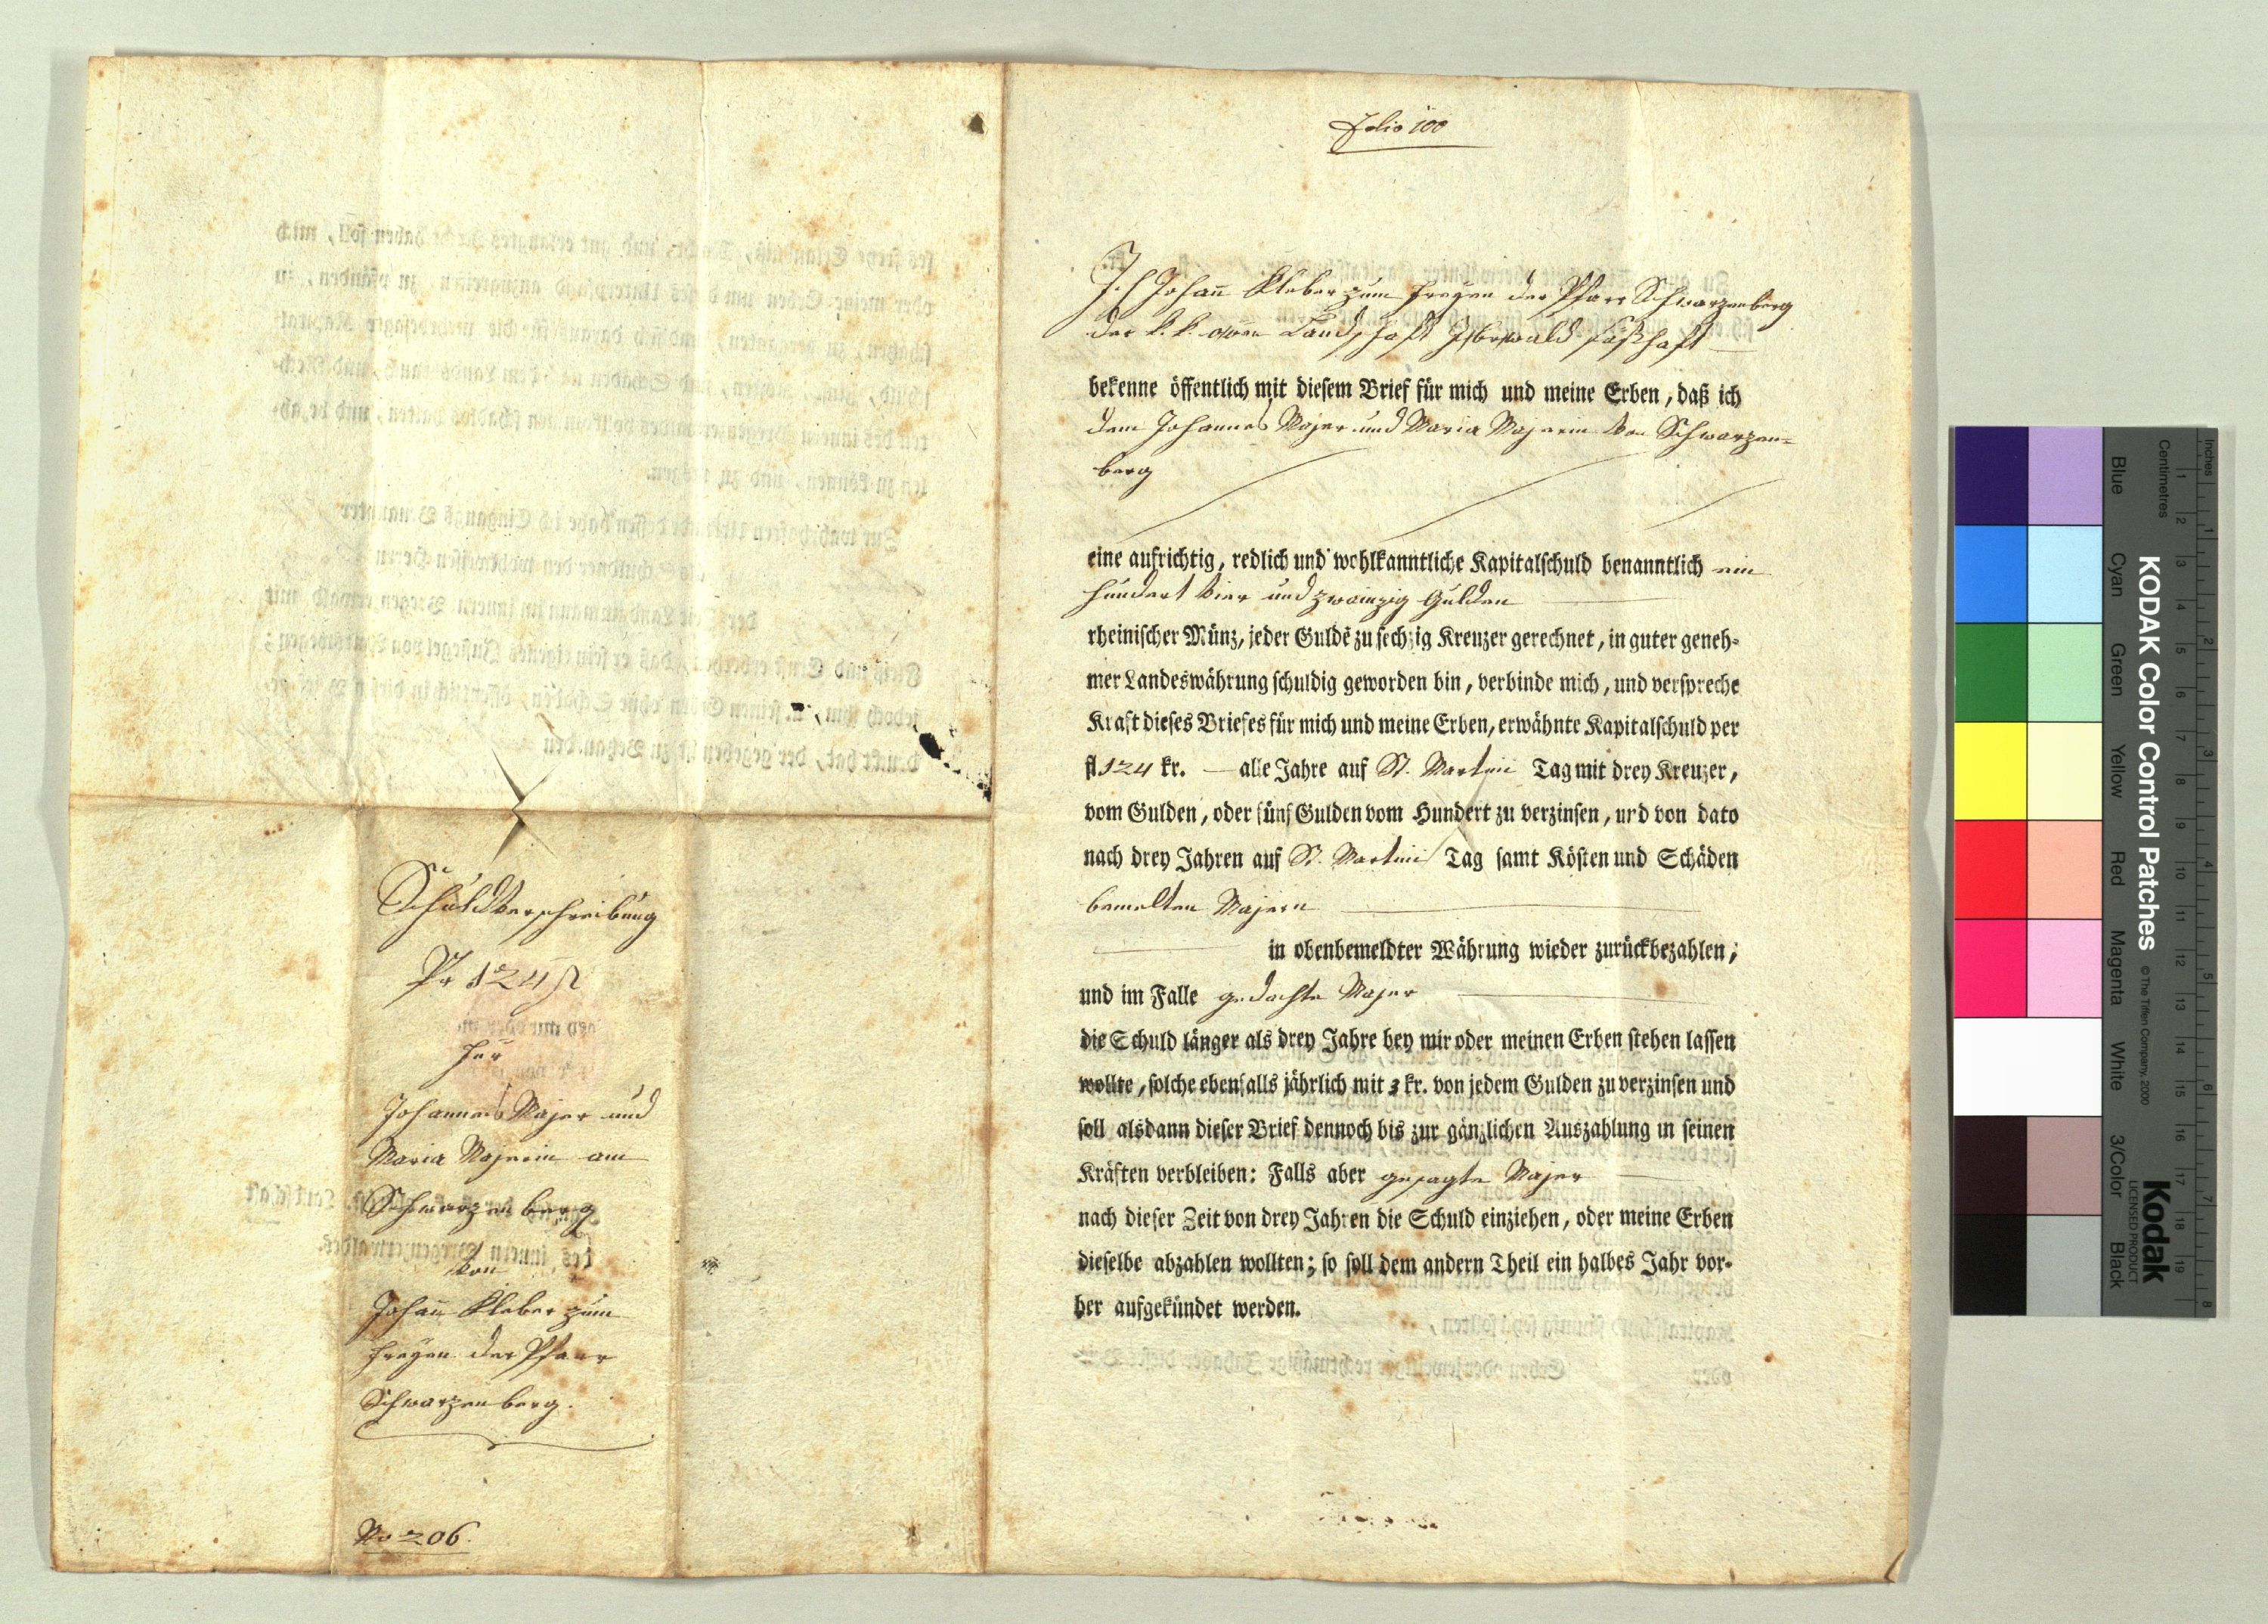 Schuldverschreibung
Pr 124 fl
für
Johannes Majer und
Maria Majerin am
Schwarzenberg
von
Johañ Kleber zum
Freyen der Pfarr
Schwarzenberg.
No 206.
Folio 100
Ich Johañ Kleber zum Freyen der Pfarr Schwarzenberg
der k. k. Landschaft seßhaft
bekenne öffentlich mit diesem Brief für mich und meine Erben, daß ich
dem Johannes Majer und Maria Majerin von Schwarzen=
berg
eine aufrichtig, redlich und wohlkanntliche Kapitalschuld benanntlich ein
hundert vier und zwanzig Gulden
rheinischer Münz, jeder Guldē zu sechzig Kreuzer gerechnet, in guter geneh-
mer Landeswährung schuldig geworden bin, verbinde mich, und verspreche
Kraft dieses Briefes für mich und meine Erben, erwähnte Kapitalschuld per
fl 124 kr. — alle Jahre auf St. Martini Tag mit drey Kreuzer,
vom Gulden, oder fünf Gulden vom Hundert zu verzinsen, und von dato
nach drey Jahren auf St. Martini Tag samt Kösten und Schäden
bemelten Majern
in obenbemeldter Währung wieder zurückbezahlen;
und im Falle gedachte Majer
die Schuld länger als drey Jahre bey mir oder meinen Erben stehen lassen
wollte, solche ebenfalls jährlich mit 3 kr. von jedem Gulden zu verzinsen und
soll alsdann dieser Brief dennoch bis zur gänzlichen Auszahlung in seinen
Kräften verbleiben: Falls aber gesagte Majer
nach dieser Zeit von drey Jahren die Schuld einziehen, oder meine Erben
dieselbe abzahlen wollten; so soll dem andern Theil ein halbes Jahr vor-
her aufgekündet werden.
Inches
Centimetres
KODAK Color Control Patches
© The Tiffen Company, 2000
Kodak
LICENSED PRODUCT
Blue
Cyan
Green
Yellow
Red
Magenta
White
3/Color
Black